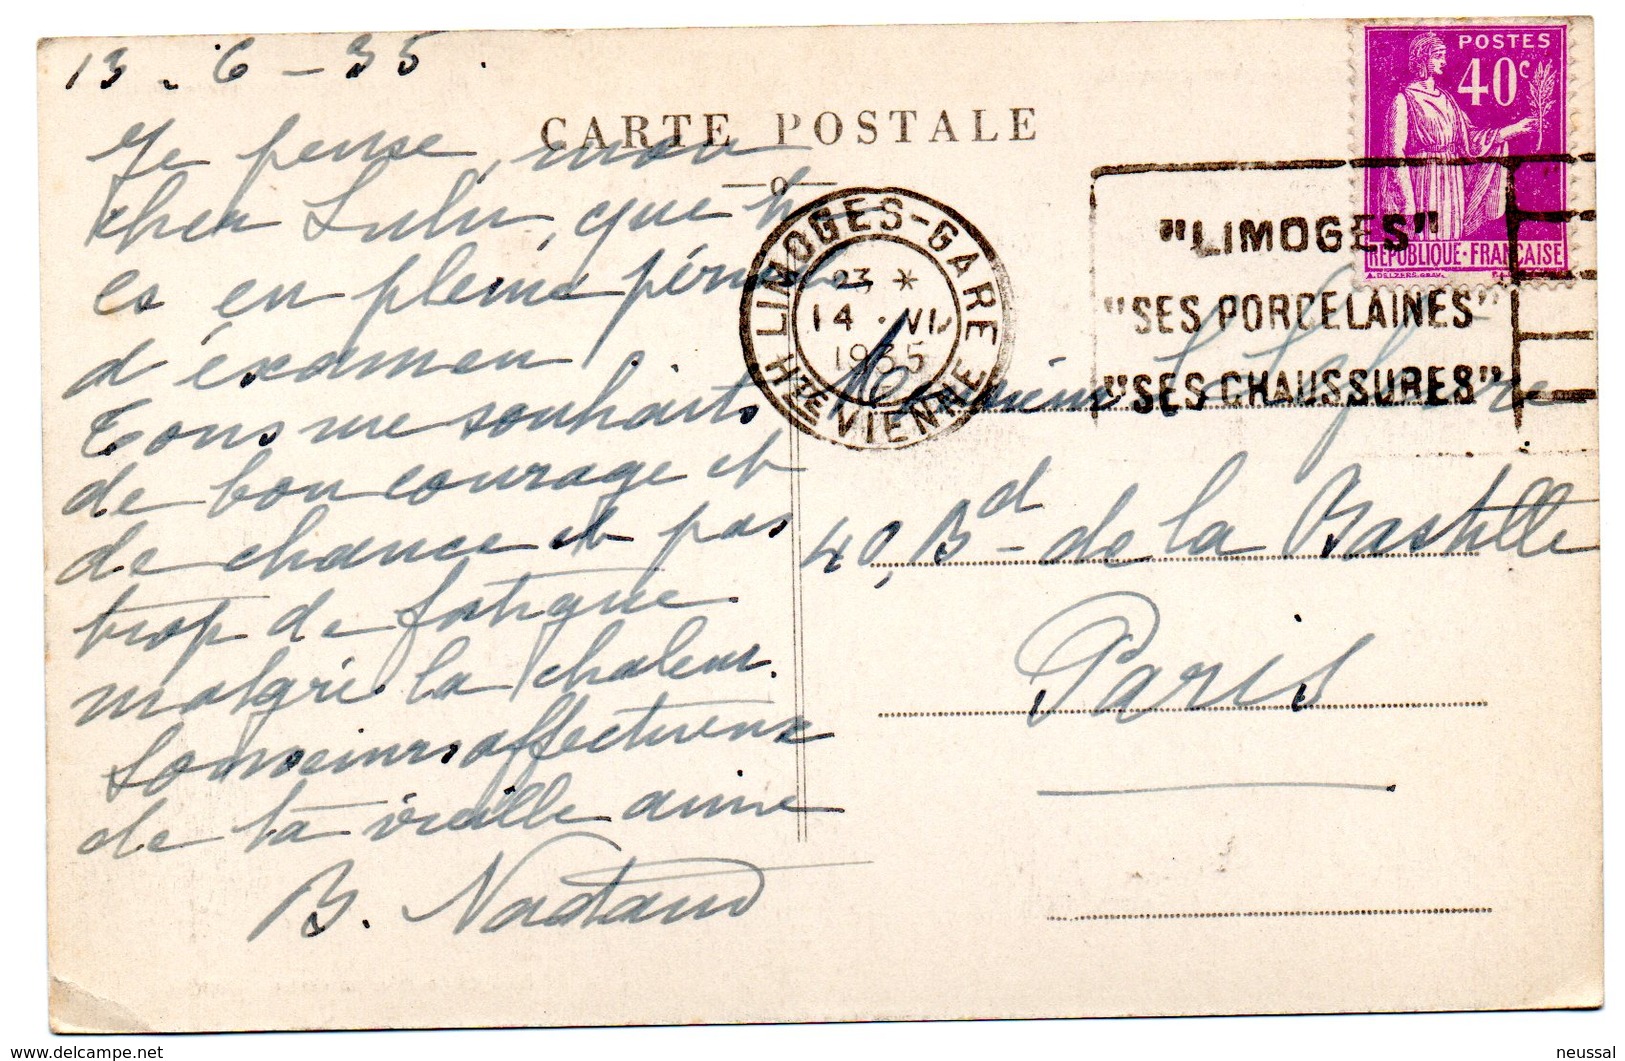 13 - 6 - 35.
CARTE POSTALE
Je pense, mon
cher Lulu, que tu
es en pleine période
d'éxamen
Tous me souhaits
de bon courage et
de chance et pas
trop de fatigue
malgré la chaleur.
Souvenirs affectueux
de ta vieille amie
B. Nadaud
LIMOGES-GARE
23 *
14 · VI
1935
HTE VIENNE
"LIMOGES"
"SES PORCELAINES"
"SES CHAUSSURES"
POSTES
40c
REPUBLIQUE·FRANÇAISE
A. DELZERS. GRAV.
Monsieur L.
40, Bd de la Bastille
Paris
delcampe.net
neussal